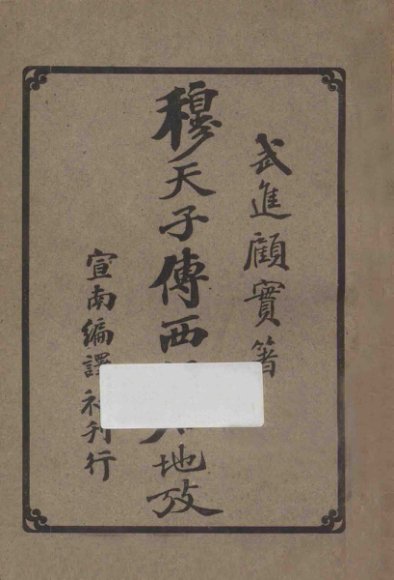 武進顧實箸
穆天子傳西地攷
宣南編譯刊行